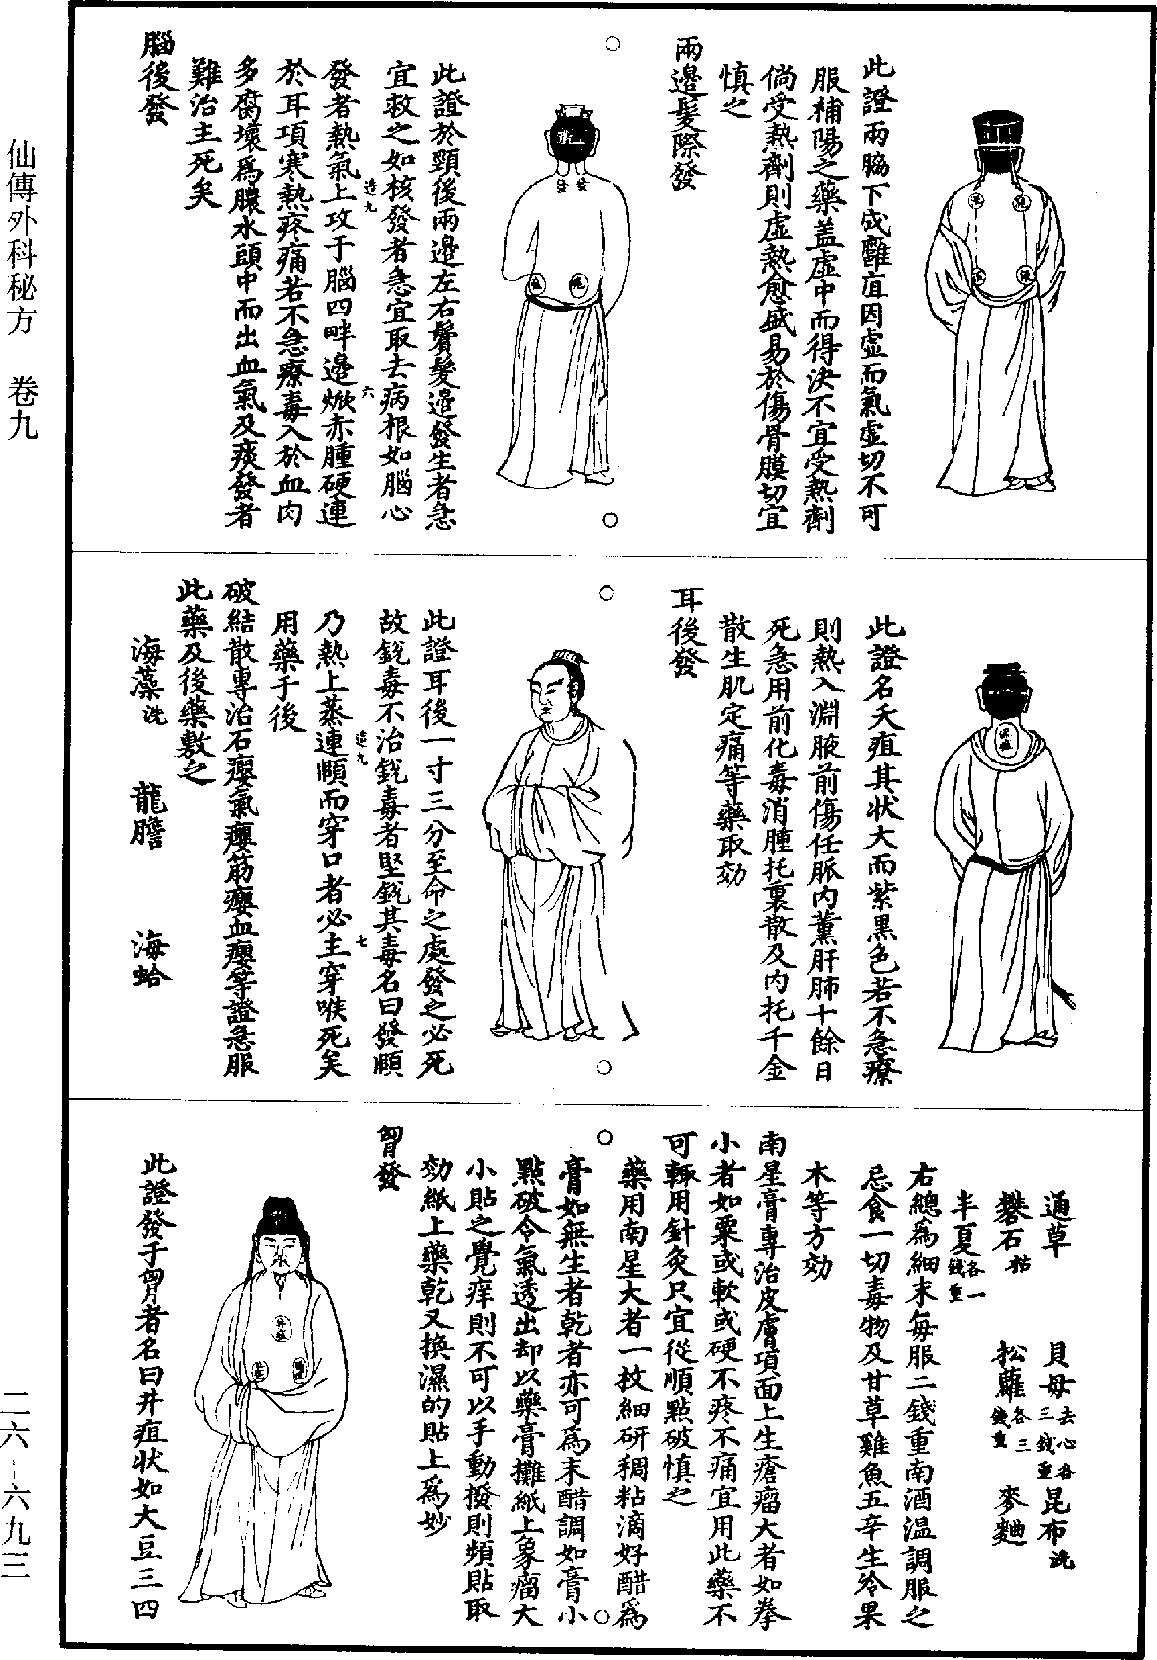 此證兩脇下成癰疽因虛而氣虛切不可
服補陽之藥盖虛中而得決不宜受熱劑
倘受熱劑則虛熱愈盛易於傷骨膜切宜
慎之
兩邊髮際發
此證於頸後兩邊左右鬢髮邊發生者急
宜救之如核發者急宜取去病根如腦心
發者熱氣上攻于腦四畔邊焮赤腫硬連
於耳項寒熱疼痛若不急療毒入於血肉
多腐壞爲膿水頭中而出血氣及痰發者
難治主死矣
腦後發
造九
六
此證名夭疽其狀大而紫黑色若不急療
則熱入淵腋前傷任脈內薰肝肺十餘日
死急用前化毒消腫托裏散及內托千金
散生肌定痛等藥取効
耳後發
此證耳後一寸三分至命之處發之必死
故銳毒不治銳毒者堅銳其毒名曰發頤
乃熱上蒸連頤而穿口者必主穿喉死矣
用藥于後
造九
七
破結散專治石癭氣癭筋癭血癭等證急服
此藥及後藥敷之
海藻洗 龍膽 海蛤
通草 貝母去心各三錢重 昆布洗
礬石枯 松蘿各三錢重 麥麯
半夏各一錢重
右總爲細末每服二錢重南酒温調服之
忌食一切毒物及甘草雞魚五辛生冷果
木等方効
南星膏專治皮膚項面上生瘡瘤大者如拳
小者如粟或軟或硬不疼不痛宜用此藥不
可輒用針灸只宜從順點破慎之
藥用南星大者一枚細研稠粘滴好醋爲
膏如無生者乾者亦可爲末醋調如膏小
點破令氣透出却以藥膏攤紙上象瘤大
小貼之覺痒則不可以手動撥則頻貼取
効紙上藥乾又換濕的貼上爲妙
胷發
此證發于胷者名曰井疽狀如大豆三四
仙傳外科秘方 卷九
二六-六九三